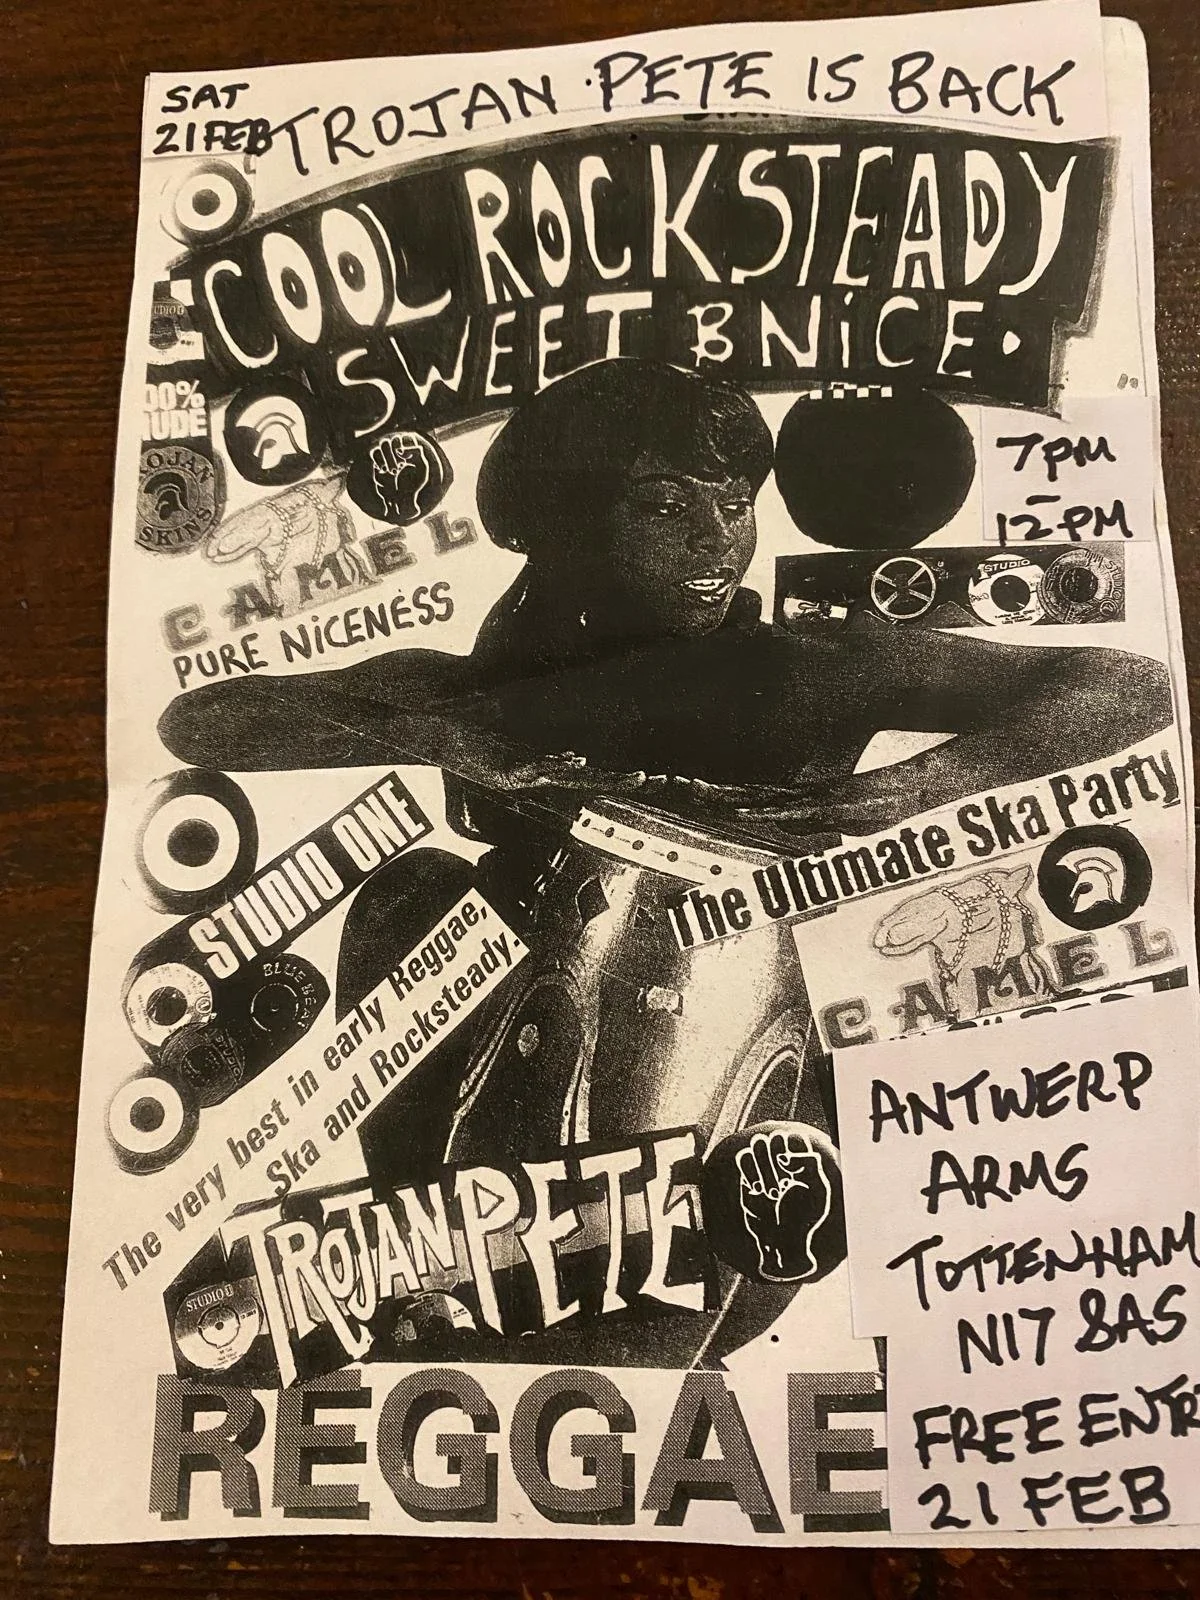 SAT
21 FEB
TROJAN PETE IS BACK
COOL ROCKSTEADY
SWEET B NiCE.
00%
UDE
OJAN
SKINS
7PM
-
12-PM
CAMEL
PURE NiCENESS
STUDIO
STUDIO ONE
BLUE BEAT
The Ultimate Ska Party
CAMEL
The very best in early Reggae,
Ska and Rocksteady.
TROJAN PETE
STUDIO 1
REGGAE
ANTWERP
ARMS
TOTTENHAM
N17 8AS
FREE ENTR
21 FEB